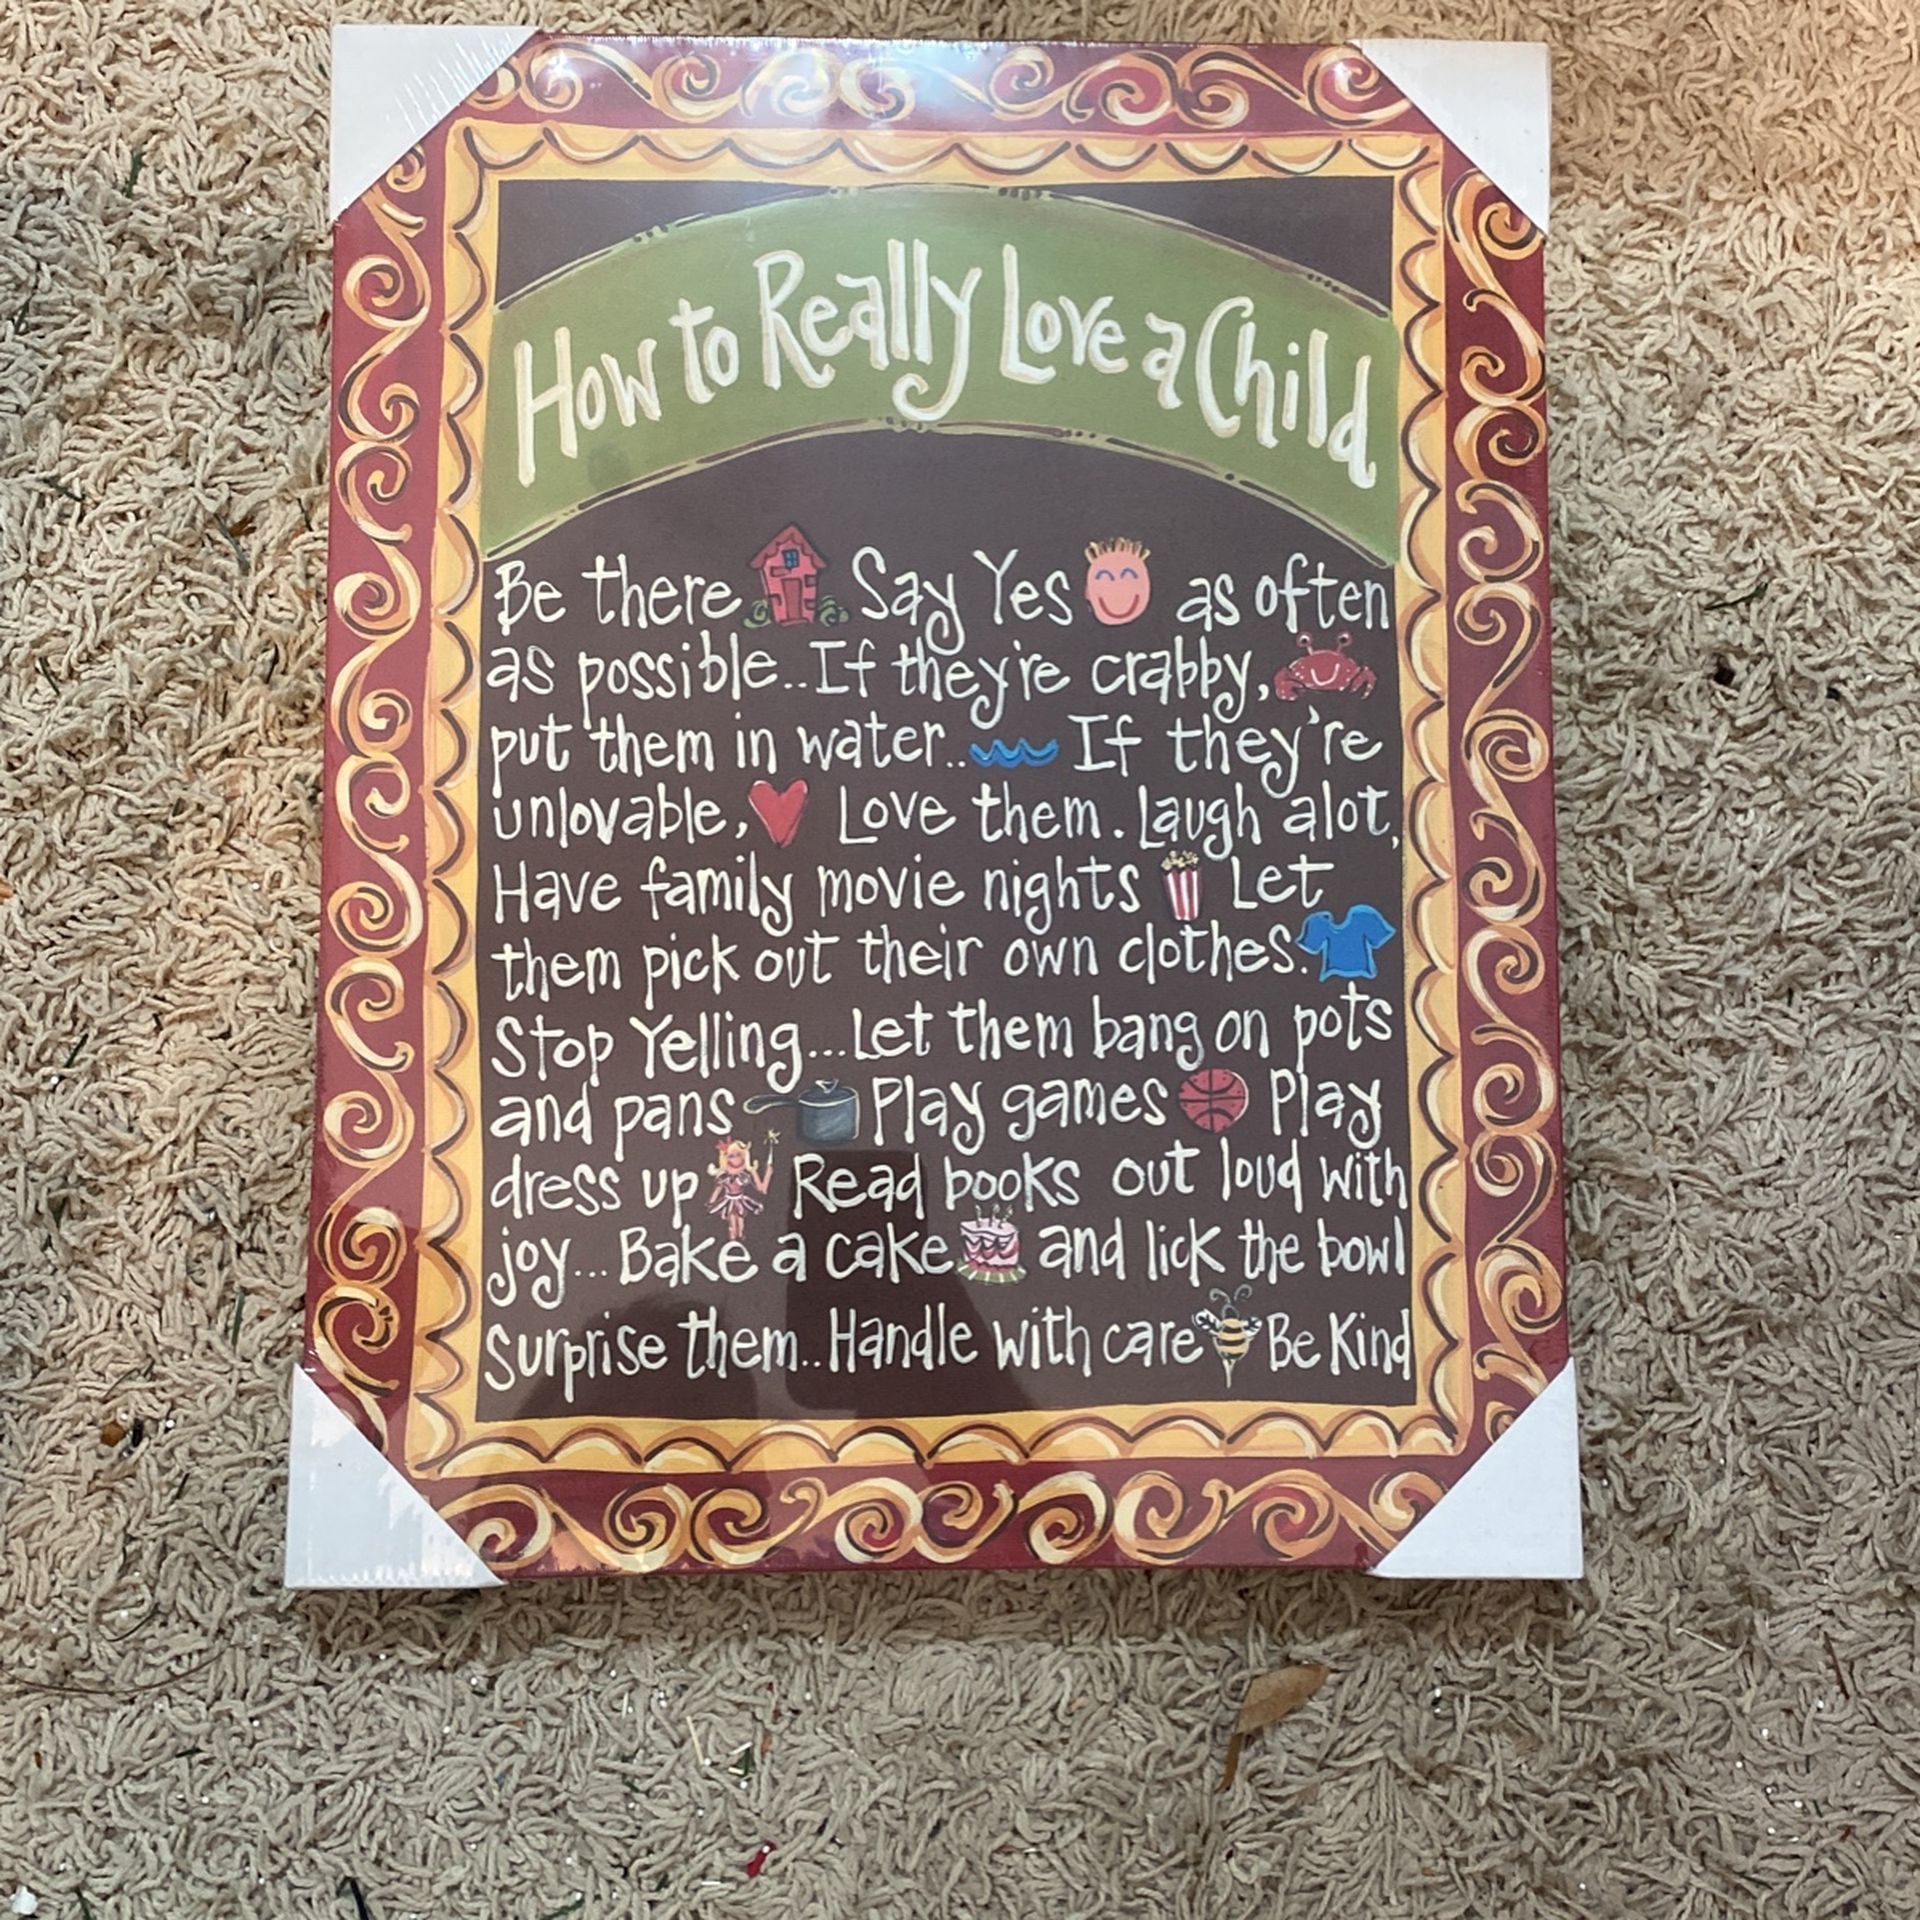 How to Really Love a Child
Be there Say Yes as often
as possible.. If they're crabby,
put them in water.. If they're
unlovable, Love them. Laugh alot,
Have family movie nights Let
them pick out their own clothes.
Stop Yelling... Let them bang on pots
and pans Play games Play
dress up Read books out loud with
joy... Bake a cake and lick the bowl
Surprise them.. Handle with care Be Kind